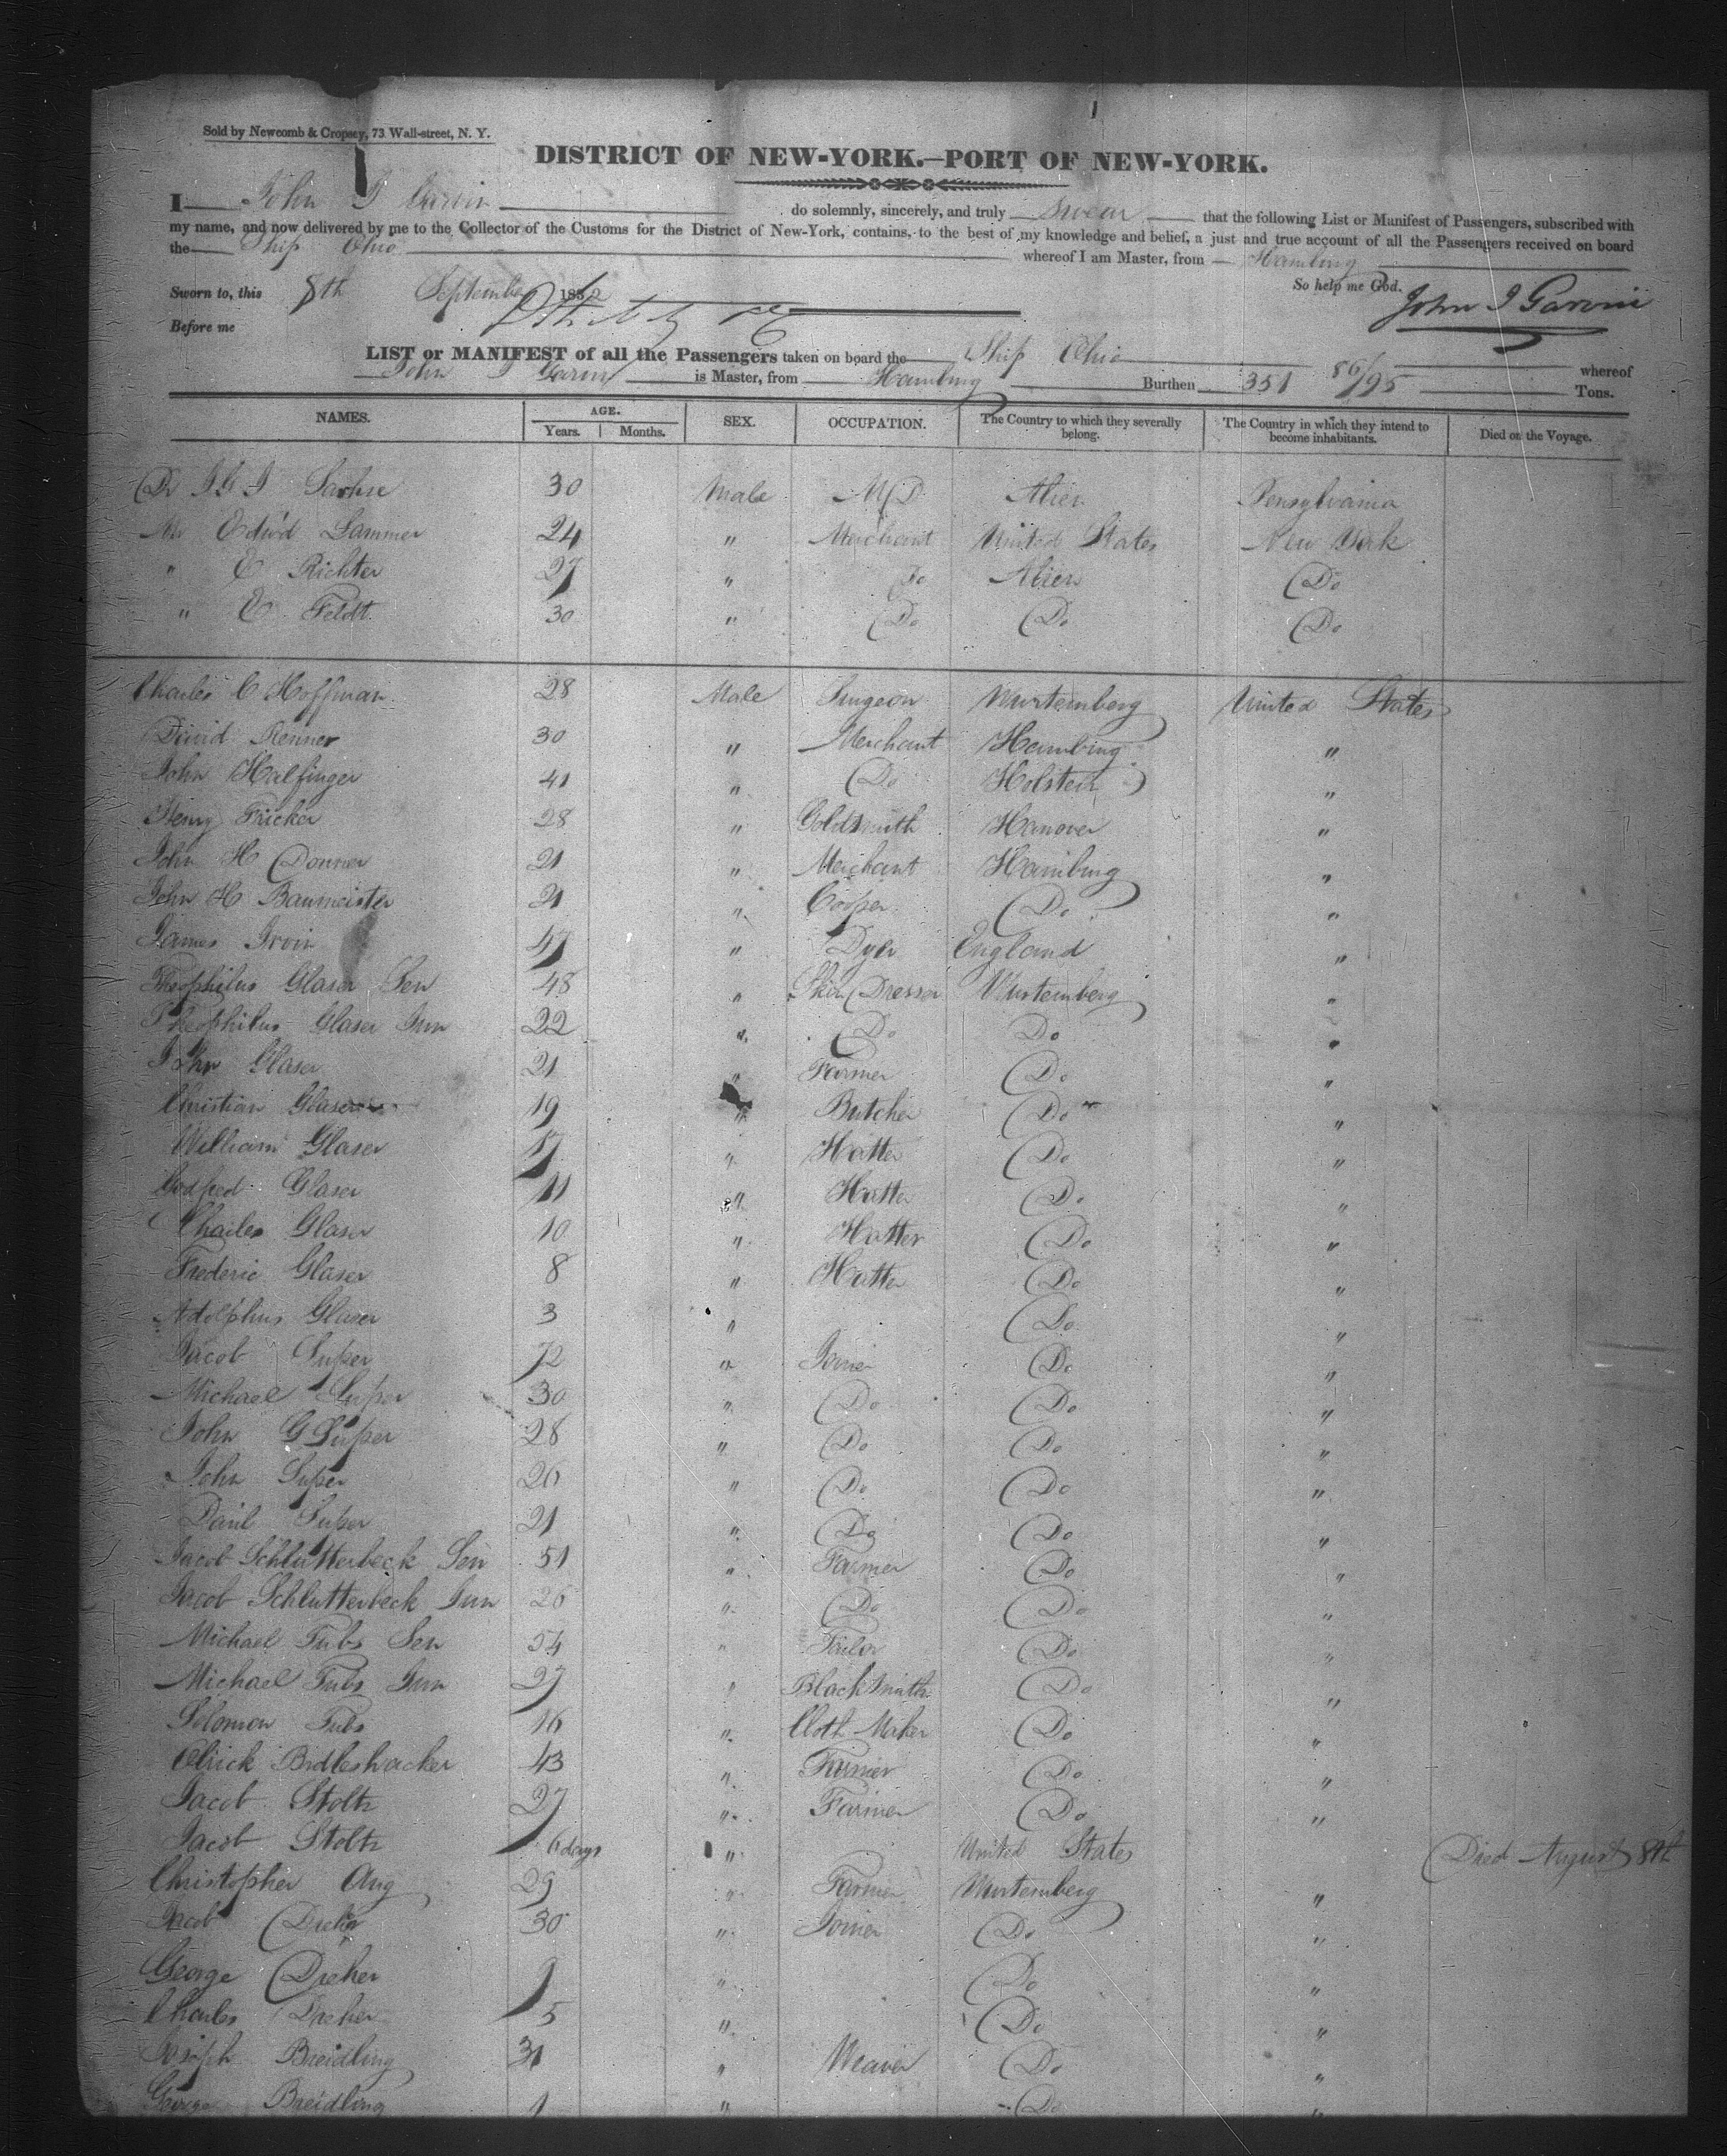 Sold by Newcomb & Cropsey, 73 Wall-street, N. Y.
DISTRICT OF NEW-YORK.—PORT OF NEW-YORK.
I John J Garvin do solemnly, sincerely, and truly swear that the following List or Manifest of Passengers, subscribed with
my name, and now delivered by me to the Collector of the Customs for the District of New-York, contains, to the best of my knowledge and belief, a just and true account of all the Passengers received on board
the Ship Ohio whereof I am Master, from Hamburg
Sworn to, this 8th September 1832 So help me God. John J Garvin
Before me
LIST or MANIFEST of all the Passengers taken on board the Ship Ohio whereof
John J Garvin is Master, from Hamburg Burthen 351 86/95 Tons.
NAMES. AGE. Years. Months. SEX. OCCUPATION. The Country to which they severally belong. The Country in which they intend to become inhabitants. Died on the Voyage.
Dr Sachse 30 Male MD Alien Pensylvania
Mr Edwd Lammer 24 " Merchant United States New York
" E Richter 27 " Do Alien Do
" E Feldt 30 " Do Do Do
Charles C Hoffman 28 Male Surgeon Wurtemberg United States
David Renner 30 " Merchant Hamburg "
John Halfinger 41 " Do Holstein "
Henry Fricker 28 " Goldsmith Hanover "
John H Donner 21 " Merchant Hamburg "
John H Baumeister 21 " Cooper Do "
James Irvin 47 " Dyer England "
Theophilus Glaser Sen 48 " Skin Dresser Wurtemberg "
Theophilus Glaser Jun 22 " Do Do "
John Glaser 21 " Farmer Do "
Christian Glaser 19 " Butcher Do "
William Glaser 17 " Hatter Do "
Godfred Glaser 11 " Hatter Do "
Charles Glaser 10 " Hatter Do "
Frederic Glaser 8 " Hatter Do "
Adolphus Glaser 3 " Do "
Jacob Super 72 " Joiner Do "
Michael Super 30 " Do Do "
John G Super 28 " Do Do "
John Super 26 " Do Do "
Danl Super 21 " Do Do "
Jacob Schlutterbeck Sen 51 " Farmer Do "
Jacob Schlutterbeck Jun 26 " Do Do "
Michael Fubs Sen 54 " Tailor Do "
Michael Fubs Jun 27 " Blacksmith Do "
Solomon Fubs 16 " Cloth Maker Do "
Olrick 43 " Farmer Do "
Jacob Stoltz 27 " Farmer Do "
Jacob Stoltz 6 days " United States Died August 8th
Christopher Aug 29 " Farmer Wurtemberg "
Jacob Dreher 30 " Joiner Do "
George Dreher 9 " Do "
Charles Dreher 5 " Do "
Joseph Breidling 31 " Weaver Do "
George Breidling 1 " Do "